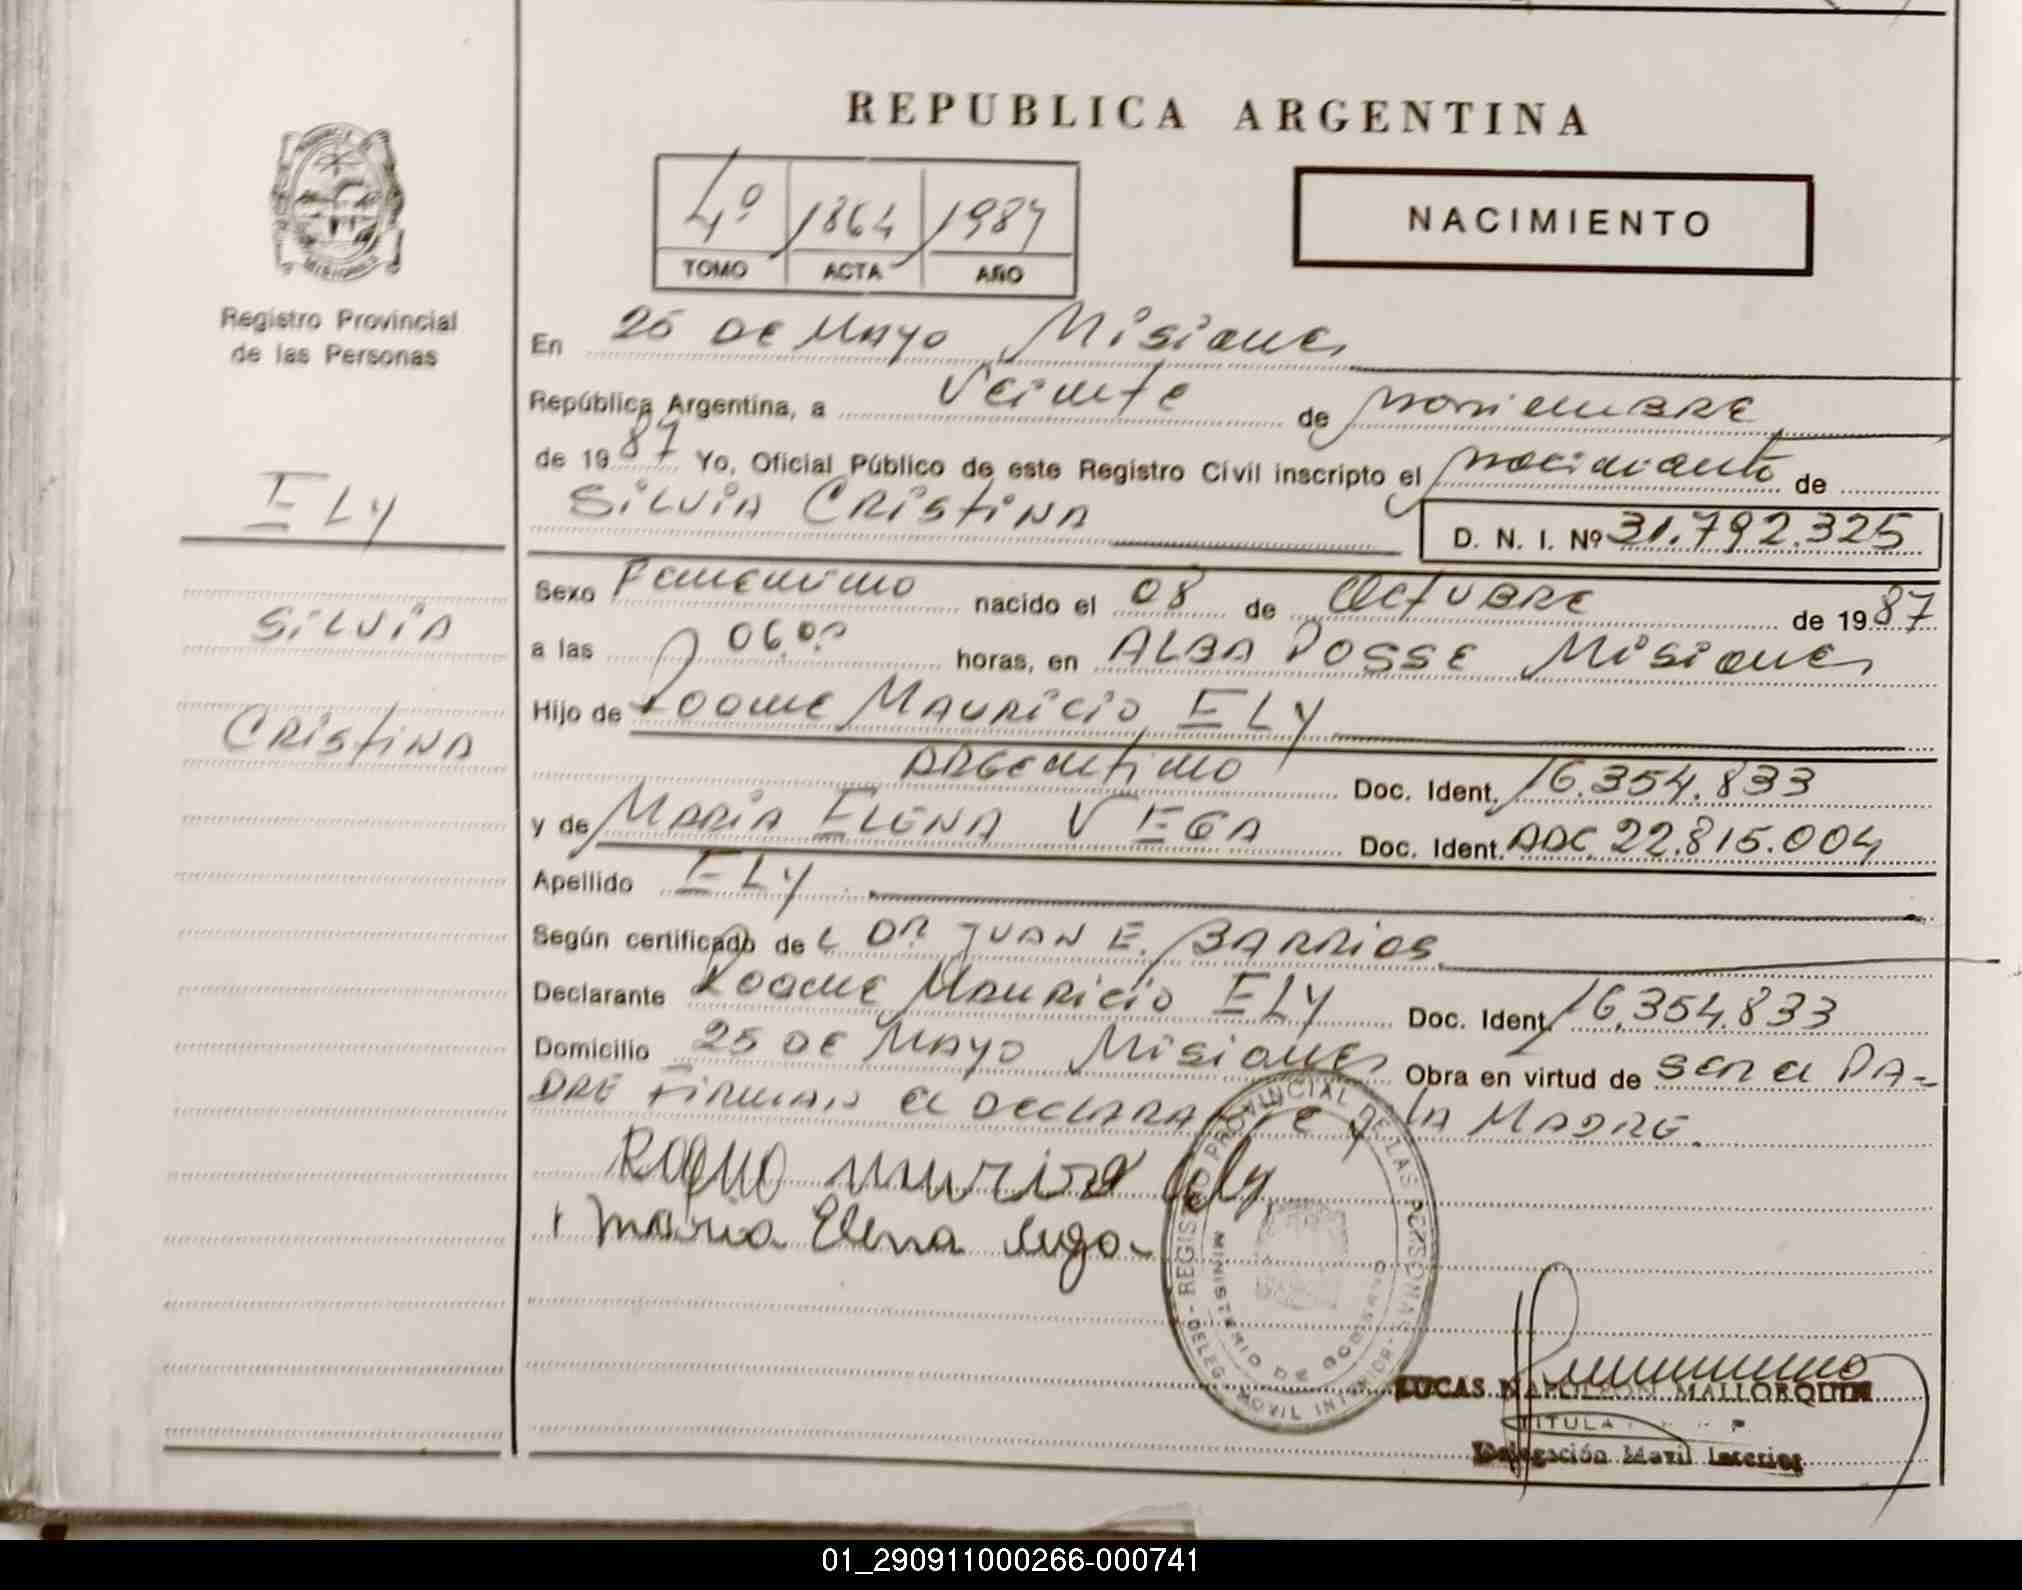 REPUBLICA ARGENTINA
4º 1864 1987
TOMO ACTA AÑO
NACIMIENTO
MISIONES
Registro Provincial
de las Personas
ELY
SILVIA
CRISTINA
En 25 DE MAYO Misiones
República Argentina, a Veinte de noviembre
de 1987 Yo, Oficial Público de este Registro Civil inscripto el nacimiento de
SILVIA CRISTINA
D. N. I. Nº 31.792.325
Sexo Femenino nacido el 08 de Octubre de 1987
a las 06.00 horas, en ALBA POSSE Misiones
Hijo de Roque Mauricio ELY
ARGENTINO Doc. Ident. 16.354.833
y de MARIA ELENA VEGA Doc. Ident. ADC 22.815.004
Apellido ELY
Según certificado de L DR. JUAN E. BARRIOS
Declarante Roque Mauricio ELY Doc. Ident. 16.354.833
Domicilio 25 DE MAYO Misiones Obra en virtud de ser el PA-
DRE Firman el DECLARANTE y LA MADRE.
Roque Ely
Maria Elena
REGISTRO PROVINCIAL DE LAS PERSONAS
MINISTERIO DE GOBIERNO
DELEG. MOVIL INTERIOR
LUCAS NAPOLEON MALLORQUIN
TITULAR
Delegación Movil Interior
01_290911000266-000741